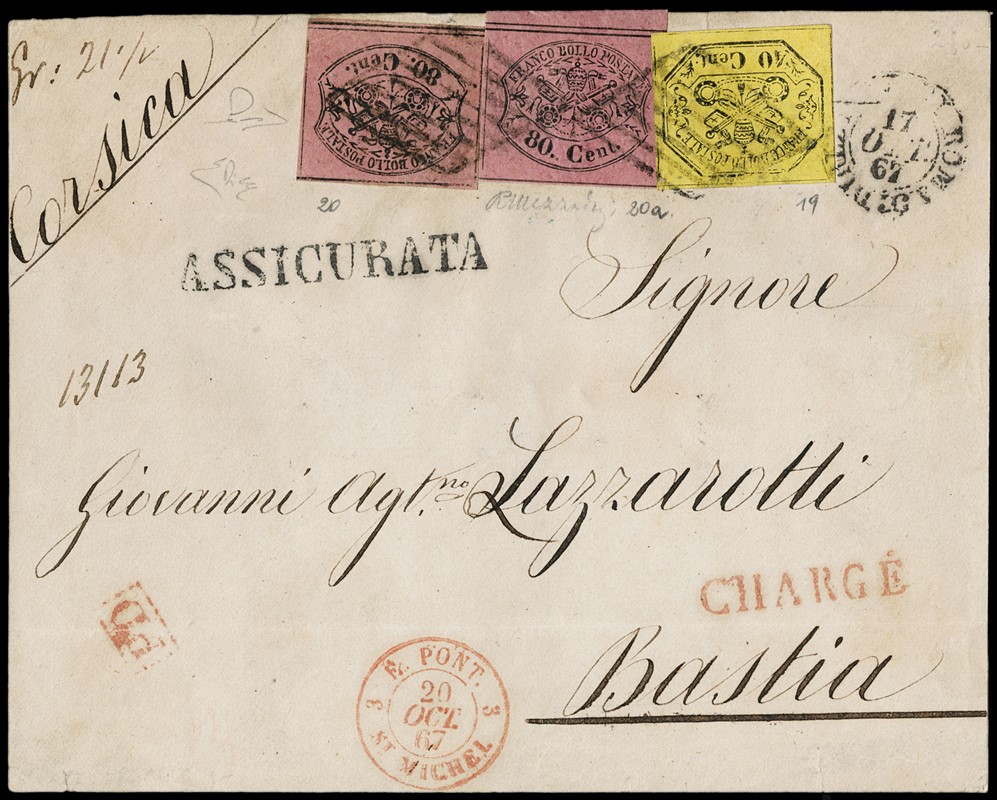 Gr: 21 1/2
Corsica
FRANCO BOLLO POSTALE
80. Cent.
FRANCO BOLLO POSTALE
80. Cent.
FRANCO BOLLO POSTALE
40 Cent.
ROMA
17
OTT
67
20
20a.
19
ASSICURATA
Signore
13113
Giovanni Agt.no Lazzarotti
CHARGÉ
PD
Bastia
E. PONT.
3 3
20
OCT.
67
ST MICHEL